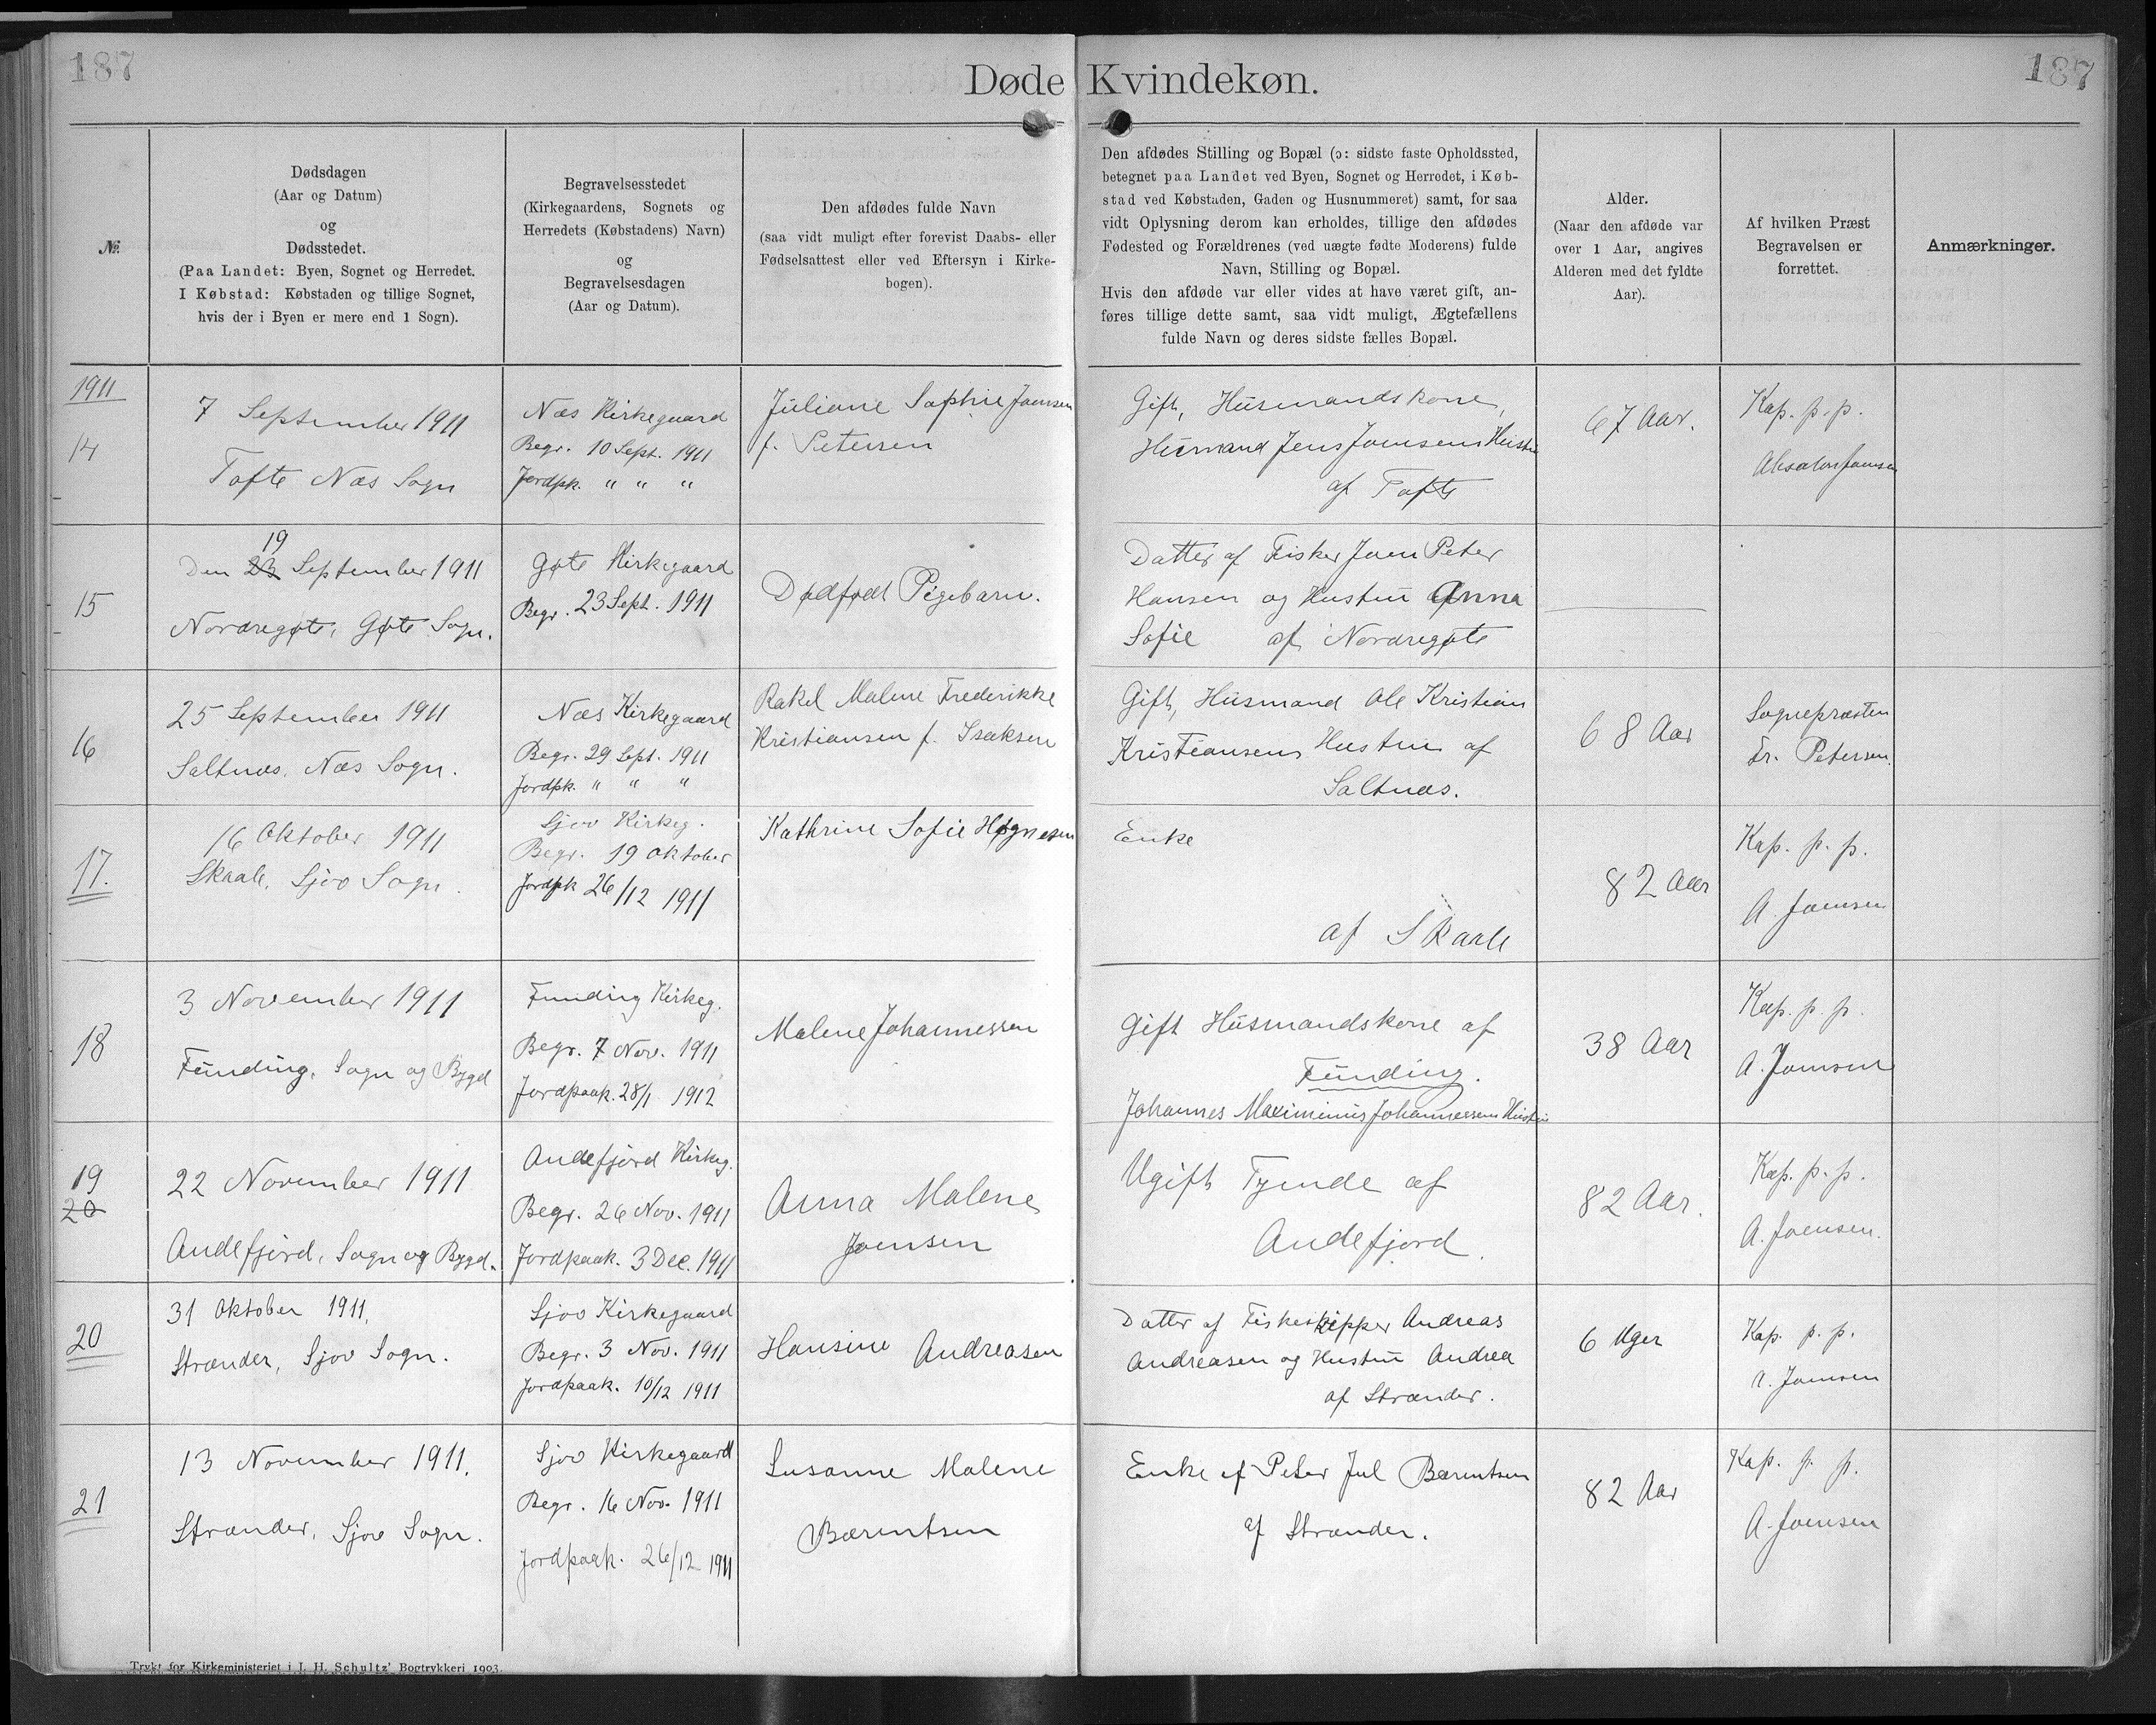 187
187
Døde Kvindekøn.
№.
Dødsdagen
(Aar og Datum)
og
Dødsstedet.
(Paa Landet: Byen, Sognet og Herredet.
I Købstad: Købstaden og tillige Sognet,
hvis der i Byen er mere end 1 Sogn).
Begravelsesstedet
(Kirkegaardens, Sognets og
Herredets (Købstadens) Navn)
og
Begravelsesdagen
(Aar og Datum).
Den afdødes fulde Navn
(saa vidt muligt efter forevist Daabs- eller
Fødselsattest eller ved Eftersyn i Kirke-
bogen).
Den afdødes Stilling og Bopæl (ɔ: sidste faste Opholdssted,
betegnet paa Landet ved Byen, Sognet og Herredet, i Køb-
stad ved Købstaden, Gaden og Husnummeret) samt, for saa
vidt Oplysning derom kan erholdes, tillige den afdødes
Fødested og Forældrenes (ved uægte fødte Moderens) fulde
Navn, Stilling og Bopæl.
Hvis den afdøde var eller vides at have været gift, an-
føres tillige dette samt, saa vidt muligt, Ægtefællens
fulde Navn og deres sidste fælles Bopæl.
Alder.
(Naar den afdøde var
over 1 Aar, angives
Alderen med det fyldte
Aar).
Af hvilken Præst
Begravelsen er
forrettet.
Anmærkninger.
1911
14
7 September 1911
Tofte Næs Sogn
Næs Kirkegaard
Begr. 10 Sept. 1911
Jordpk. " " "
Juliane Sophie Joensen
f. Petersen
Gift, Husmandskone,
Husmand Jens Joensens Hustru
af Tofte
67 Aar.
Kap. p. p.
Absalon Joensen
15
19
Den 23 September 1911
Nordregøte, Gøte Sogn.
Gøte Kirkegaard
Begr. 23 Sept. 1911
Dødfødt Pigebarn.
Datter af Fisker Joen Peter
Hansen og Hustru Anna
Sofie af Nordregøte
16
25 September 1911
Saltnæs, Næs Sogn.
Næs Kirkegaard
Begr. 29 Sept. 1911
Jordpk. " " "
Rakel Malene Frederikke
Kristiansen f. Isaksen
Gift, Husmand Ole Kristian
Kristiansens Hustru af
Saltnæs.
68 Aar
Sognepræsten
Fr. Petersen.
17.
16 Oktober 1911
Skaale, Sjov Sogn.
Sjov Kirkeg.
Begr. 19 Oktober
Jordpk 26/12 1911
Kathrine Sofie Høgnesen
Enke
af Skaale
82 Aar
Kap. p. p.
A. Joensen
18
3 November 1911
Funding, Sogn og Bygd
Funding Kirkeg.
Begr. 7 Nov. 1911
Jordpaak. 28/1 1912
Malene Johannessen
Gift Husmandskone af
Funding.
Johannes Maximinus Johannessens Hustru
38 Aar
Kap. p. p.
A. Joensen
19
20
22 November 1911
Andefjord, Sogn og Bygd.
Andefjord Kirkeg.
Begr. 26 Nov. 1911
Jordpaak. 3 Dec. 1911
Anna Malene
Joensen
Ugift Tyende af
Andefjord.
82 Aar.
Kap. p. p.
A. Joensen.
20
31 Oktober 1911.
Strænder, Sjov Sogn.
Sjov Kirkegaard
Begr. 3 Nov. 1911
Jordpaak. 10/12 1911
Hansine Andreasen
Datter af Fiskeskipper Andreas
Andreasen og Hustru Andrea
af Strænder.
6 Uger
Kap. p. p.
A. Joensen
21
13 November 1911.
Strænder, Sjov Sogn.
Sjov Kirkegaard
Begr. 16 Nov. 1911
Jordpaak. 26/12 1911
Susanne Malene
Bærentsen
Enke af Peter Jul Bærentsen
af Strænder.
82 Aar
Kap. p. p.
A. Joensen
Trykt for Kirkeministeriet i J. H. Schultz' Bogtrykkeri 1903.